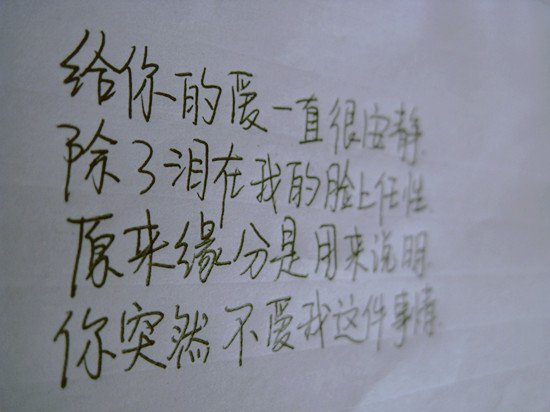 给你的爱一直很安静
除了泪在我的脸上任性
原来缘分是用来说明
你突然不爱我这件事情